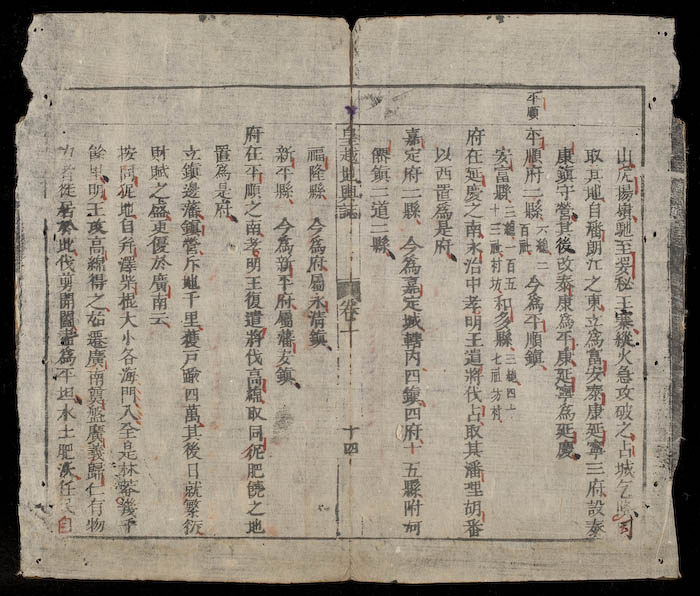 山虎揚嶺馳至婆秘王寨縱火急攻破之占城乞降
取其地自潘朗江之東立為富安泰康延寧三府設泰
康鎮守營其後改泰康為平康延寧為延慶
平順
平順府二縣 六總二百社 今為平順鎮
安富縣 三總一百五十三社村坊 和多縣 三總四十七社坊村
府在延慶之南永治中孝明王遣將伐占取其潘理胡番
以西置為是府
嘉定府二縣 今為嘉定城轄內四鎮四府十五縣附河
僊鎮二道二縣
皇越地輿誌 卷一 十四
福隆縣 今為府屬永清鎮
新平縣 今為新平府屬藩安鎮
府在平順之南孝明王復遣將伐高綿取同狔肥饒之地
置為是府
立鎮邊藩鎮營斥地千里獲戶四萬其後日就繁衍
財賦之盛更優於廣南云
按同狔地自芹澤柴棍大小各海門入全是林莽幾千
餘里明王攻高綿得之始遷廣南奠盤廣義歸仁有物
力者徙居於此伐剪開闢盡為平坦水土肥沃任民自